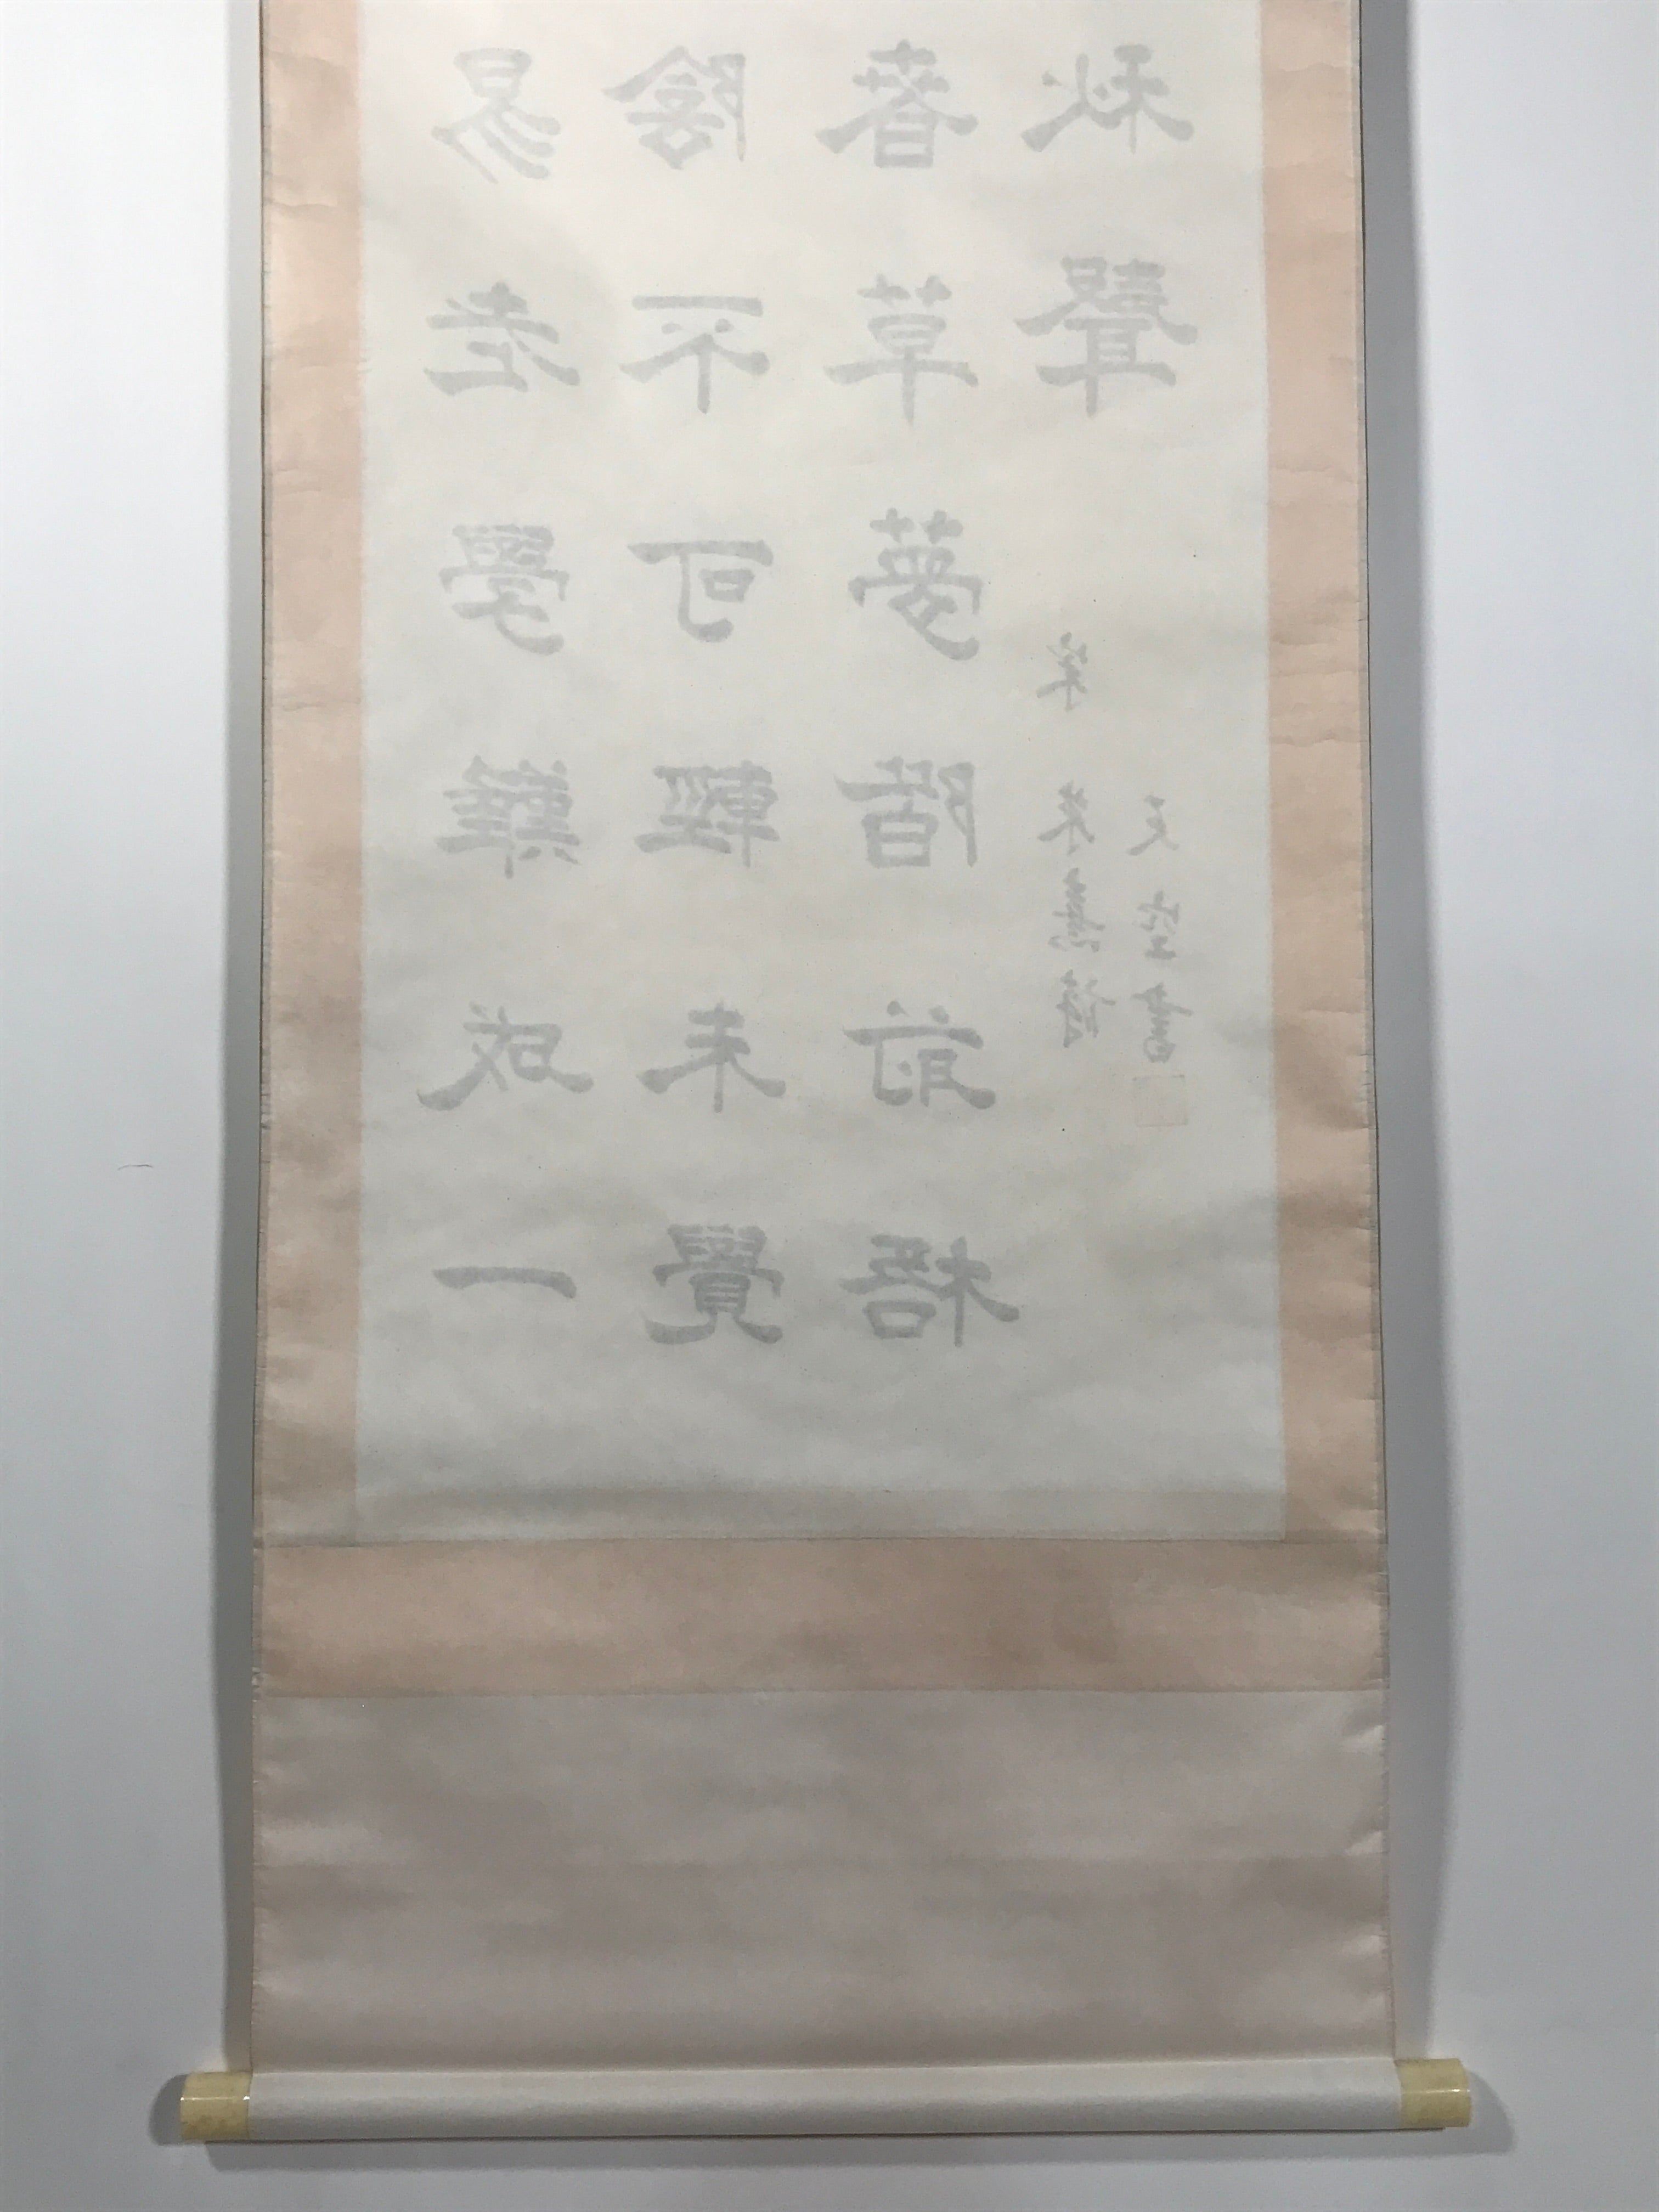 易老學難成一
陰不可輕未覺
春草夢階前梧
秋聲
宋 朱熹詩
文 書